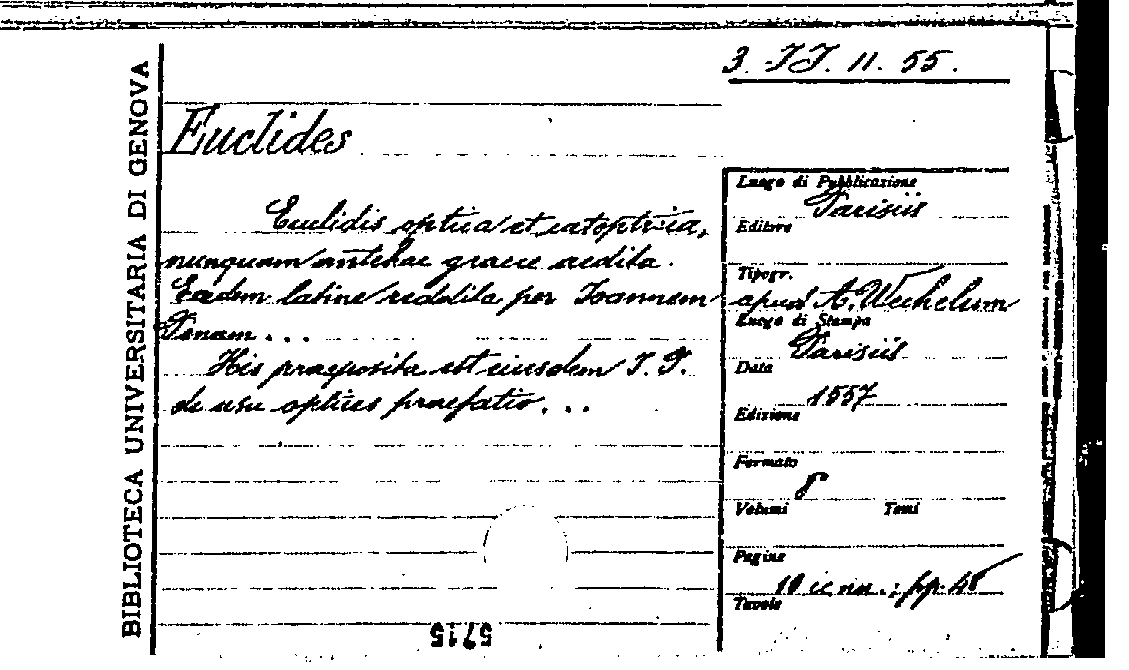 3. JJ. 11. 55.
BIBLIOTECA UNIVERSITARIA DI GENOVA
Euclides
Euclidis optica et catoptrica,
nunquam antehac graece aedita.
Eadem latine reddita per Ioannem
Penam...
His praeposita est eiusdem I. P.
de usu optices praefatio...
Luogo di Pubblicazione
Parisiis
Editore
Tipogr.
apud A. Wechelum
Luogo di Stampa
Parisiis
Data
1557
Edizione
Formato
8
Volumi Tomi
Pagine
10 cc nn.; pp. 48
Tavole
5715